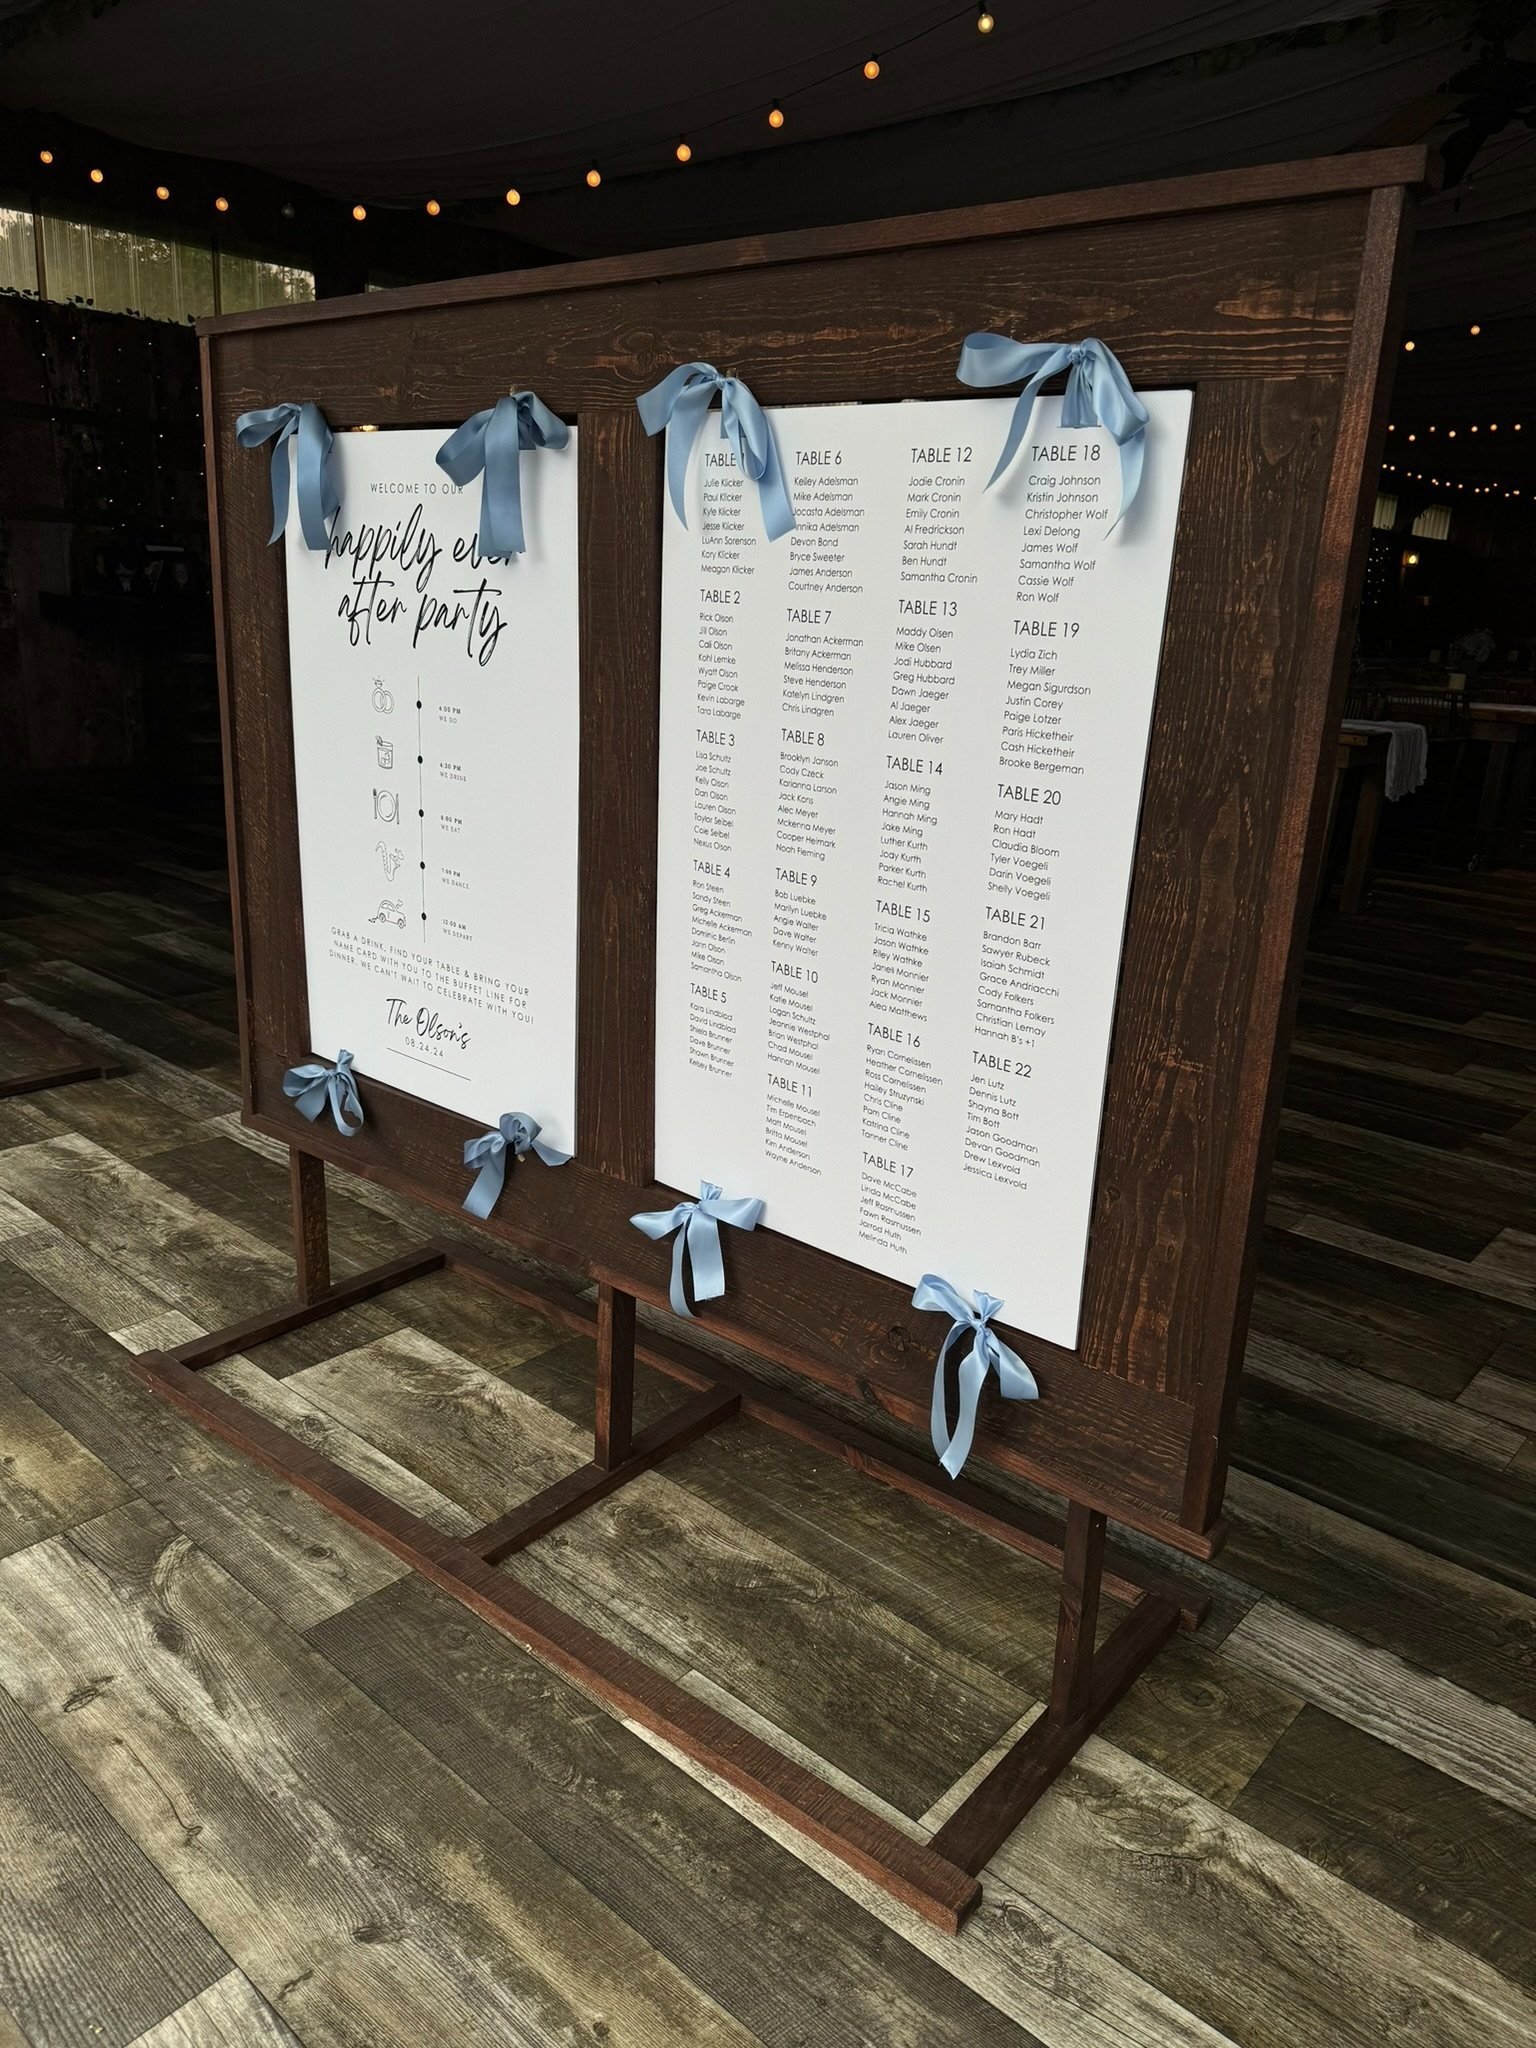 WELCOME TO OUR
happily ever
after party
4:00 PM
WE DO
4:30 PM
WE DRINK
6:00 PM
WE EAT
7:00 PM
WE DANCE
12:00 AM
WE DEPART
GRAB A DRINK, FIND YOUR TABLE & BRING YOUR
NAME CARD WITH YOU TO THE BUFFET LINE FOR
DINNER. WE CAN'T WAIT TO CELEBRATE WITH YOU!
The Olson's
08.24.24
TABLE 1
Julie Klicker
Paul Klicker
Kyle Klicker
Jesse Klicker
LuAnn Sorenson
Kory Klicker
Meagan Klicker
TABLE 2
Rick Olson
Jill Olson
Cali Olson
Kohl Lemke
Wyatt Olson
Paige Crook
Kevin Labarge
Tara Labarge
TABLE 3
Lisa Schultz
Joe Schultz
Kelly Olson
Dan Olson
Lauren Olson
Taylor Seibel
Cole Seibel
Nexus Olson
TABLE 4
Ron Steen
Sandy Steen
Greg Ackerman
Michelle Ackerman
Dominic Berlin
Jann Olson
Mike Olson
Samantha Olson
TABLE 5
Kara Lindblad
David Lindblad
Shiela Brunner
Dave Brunner
Shawn Brunner
Kelsey Brunner
TABLE 6
Kelley Adelsman
Mike Adelsman
Jocasta Adelsman
Annika Adelsman
Devon Bond
Bryce Sweeter
James Anderson
Courtney Anderson
TABLE 7
Jonathan Ackerman
Britany Ackerman
Melissa Henderson
Steve Henderson
Katelyn Lindgren
Chris Lindgren
TABLE 8
Brooklyn Janson
Cody Czeck
Karianna Larson
Jack Kons
Alec Meyer
Mckenna Meyer
Cooper Heimark
Noah Fleming
TABLE 9
Bob Luebke
Marilyn Luebke
Angie Walter
Dave Walter
Kenny Walter
TABLE 10
Jeff Mousel
Katie Mousel
Logan Schultz
Jeannie Westphal
Brian Westphal
Chad Mousel
Hannah Mousel
TABLE 11
Michelle Mousel
Tim Erpenbach
Matt Mousel
Britta Mousel
Kim Anderson
Wayne Anderson
TABLE 12
Jodie Cronin
Mark Cronin
Emily Cronin
Al Fredrickson
Sarah Hundt
Ben Hundt
Samantha Cronin
TABLE 13
Maddy Olsen
Mike Olsen
Jodi Hubbard
Greg Hubbard
Dawn Jaeger
Al Jaeger
Alex Jaeger
Lauren Oliver
TABLE 14
Jason Ming
Angie Ming
Hannah Ming
Jake Ming
Luther Kurth
Jody Kurth
Parker Kurth
Rachel Kurth
TABLE 15
Tricia Wathke
Jason Wathke
Riley Wathke
Janeli Monnier
Ryan Monnier
Jack Monnier
Alea Matthews
TABLE 16
Ryan Cornelissen
Heather Cornelissen
Ross Cornelissen
Hailey Struzynski
Chris Cline
Pam Cline
Katrina Cline
Tanner Cline
TABLE 17
Dave McCabe
Linda McCabe
Jeff Rasmussen
Fawn Rasmussen
Jarrod Huth
Melinda Huth
TABLE 18
Craig Johnson
Kristin Johnson
Christopher Wolf
Lexi Delong
James Wolf
Samantha Wolf
Cassie Wolf
Ron Wolf
TABLE 19
Lydia Zich
Trey Miller
Megan Sigurdson
Justin Corey
Paige Lotzer
Paris Hicketheir
Cash Hicketheir
Brooke Bergeman
TABLE 20
Mary Hadt
Ron Hadt
Claudia Bloom
Tyler Voegeli
Darin Voegeli
Shelly Voegeli
TABLE 21
Brandon Barr
Sawyer Rubeck
Isaiah Schmidt
Grace Andriacchi
Cody Folkers
Samantha Folkers
Christian Lemay
Hannah B's +1
TABLE 22
Jen Lutz
Dennis Lutz
Shayna Bott
Tim Bott
Jason Goodman
Devan Goodman
Drew Lexvold
Jessica Lexvold